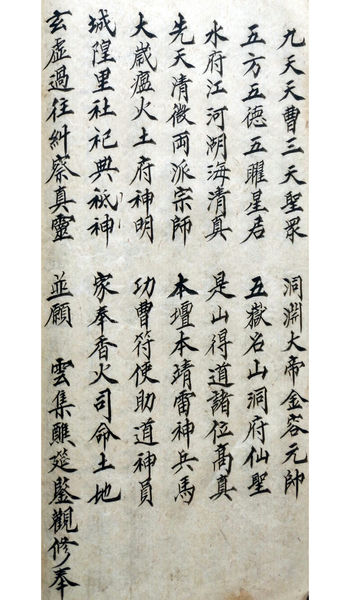 九天天曹三天聖眾 洞淵大帝金容元帥
五方五德五曜星君 五嶽名山洞府仙聖
水府江河湖海清真 是山得道諸位高真
先天清微兩派宗師 本壇本靖雷神兵馬
大歲瘟火土府神明 功曹符使助道神員
城隍里社祀典祇神 家奉香火司命土地
玄虛過往糾察真靈 並願 雲集醮筵鑒觀修奉